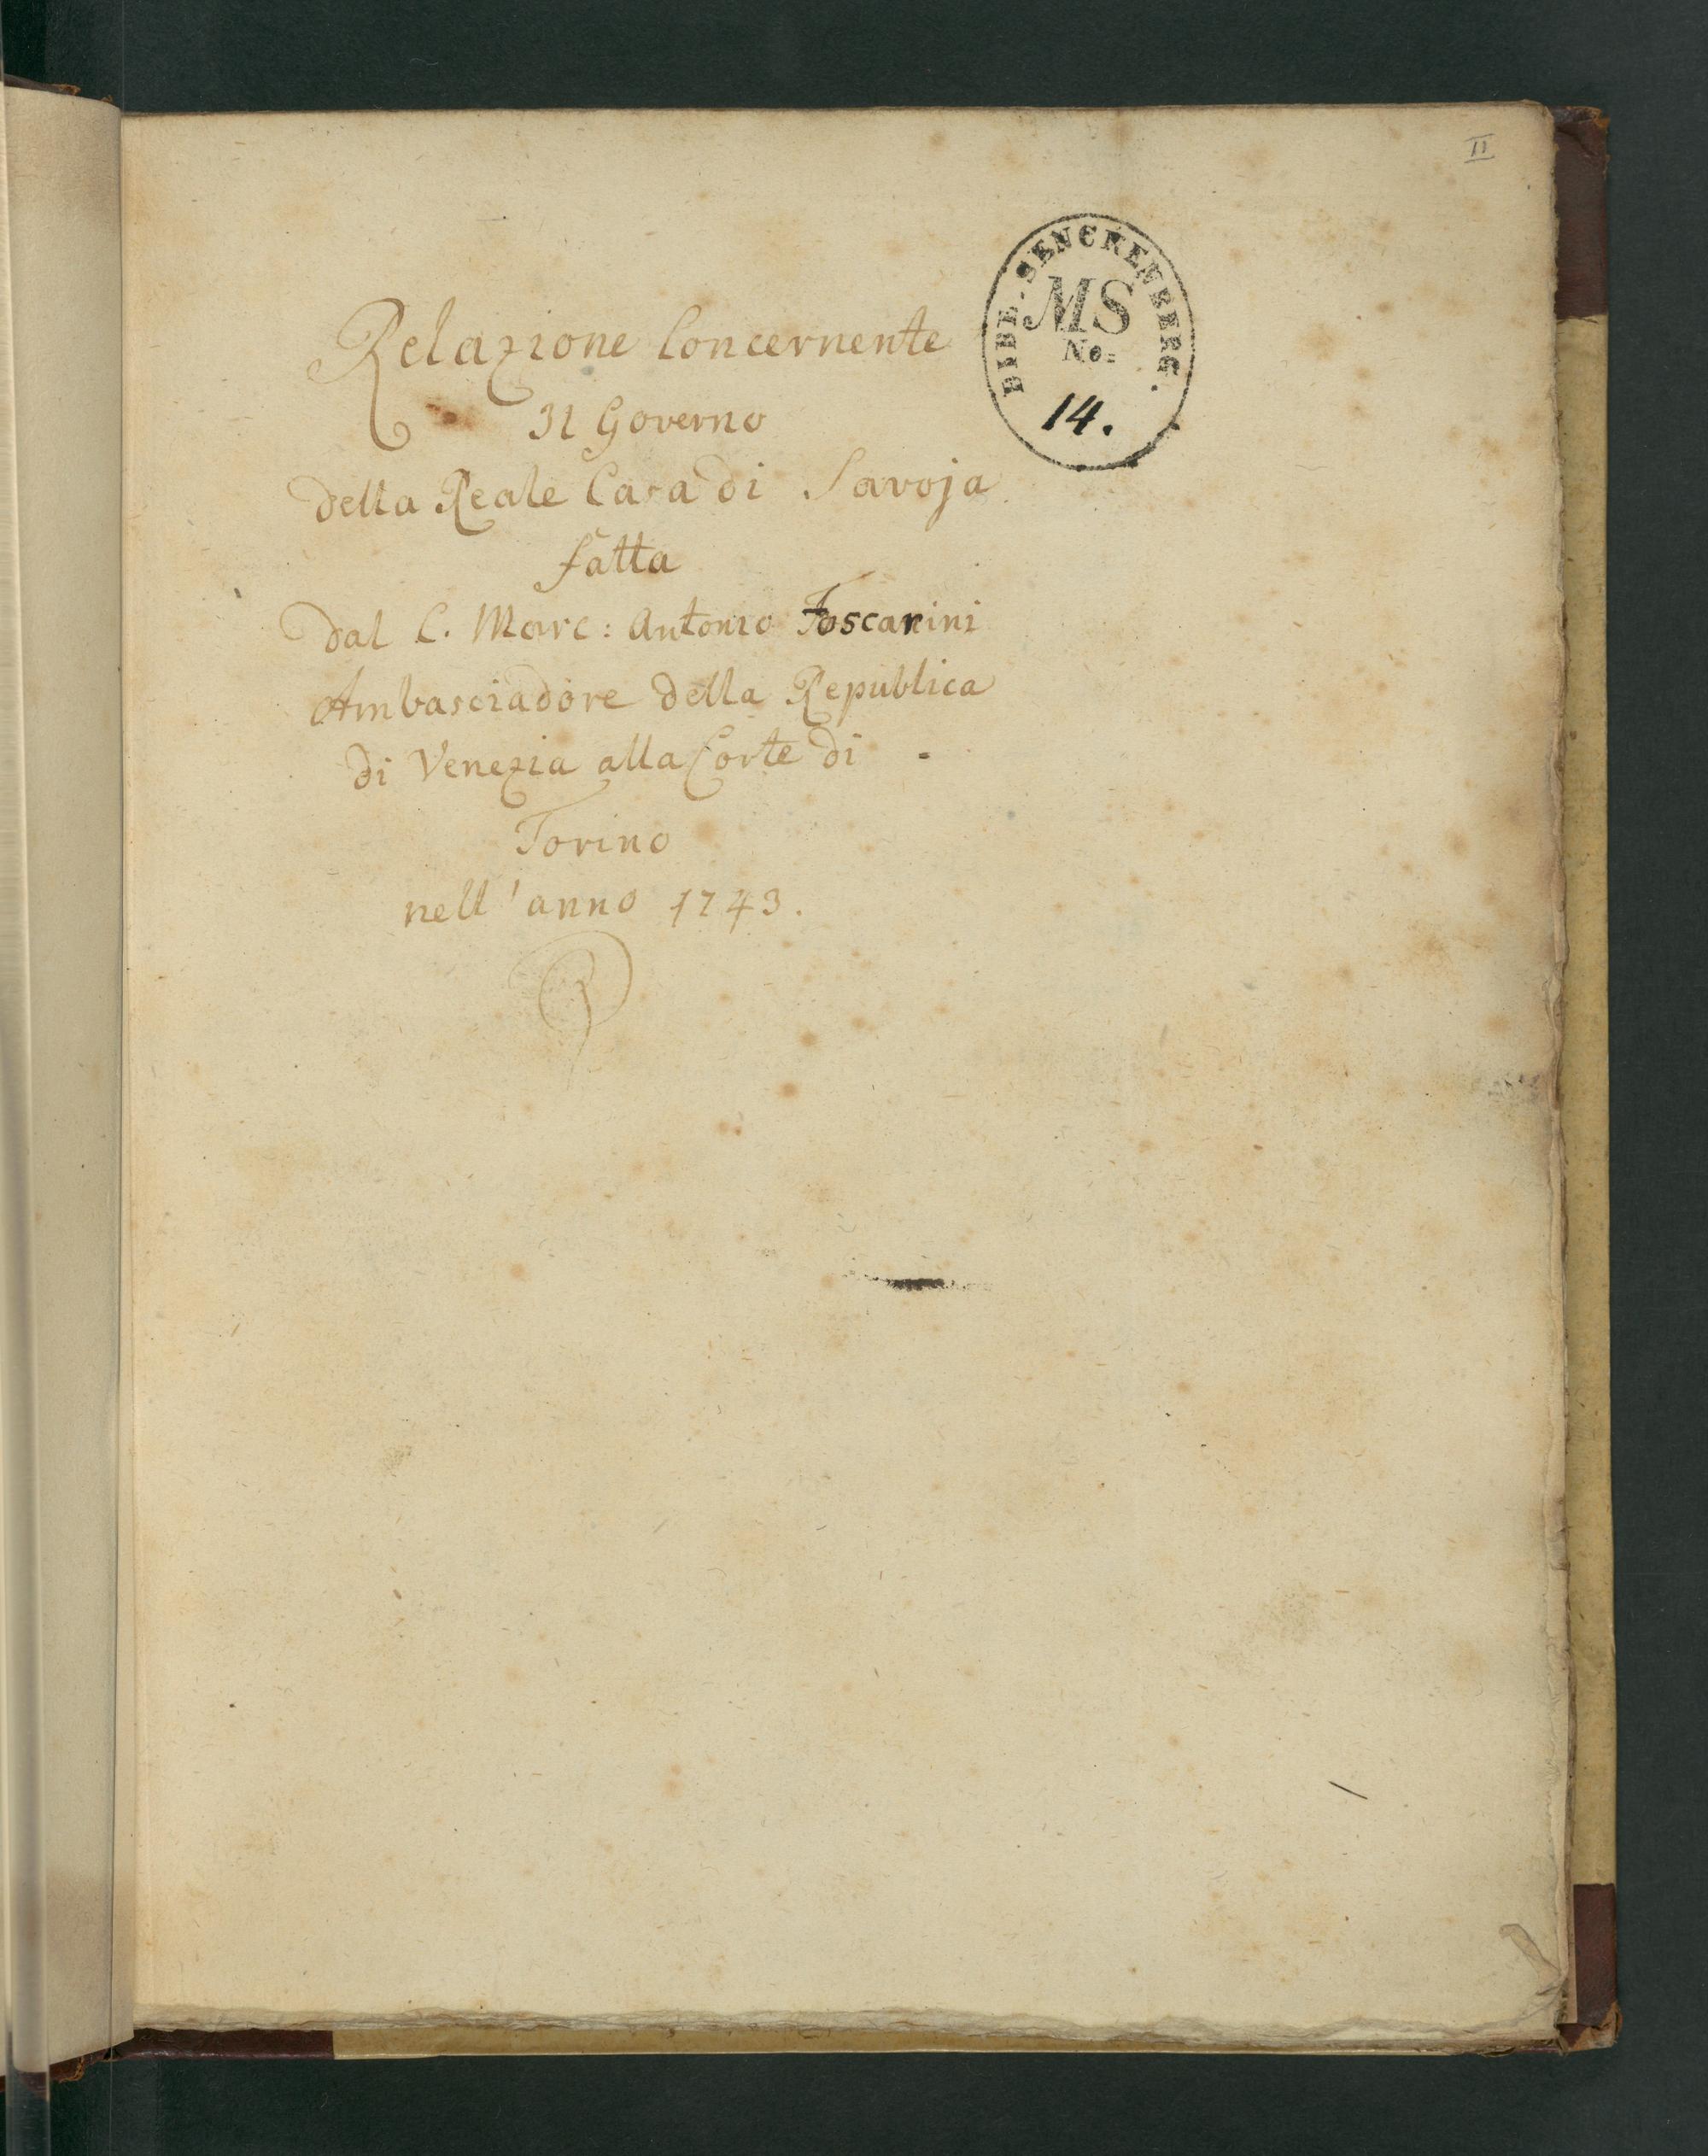 II
BIBL. SENCKENBERG.
MS
No=
14.
Relazione Concernente
Il Governo
della Reale Casa di Savoja
fatta
dal C. Marc: Antonio Foscarini
Ambasciadore della Republica
di Venezia alla Corte di -
Torino
nell' anno 1743.